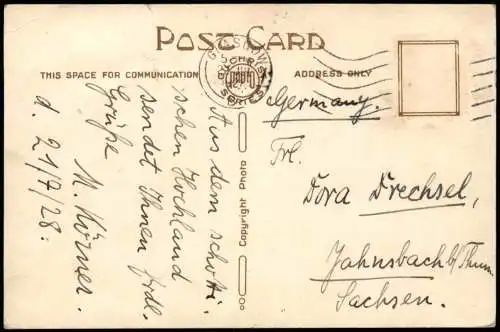 POST CARD
THIS SPACE FOR COMMUNICATION
ADDRESS ONLY
GLASGOW
SERIES
Copyright Photo
Aus dem schotti-
schen Hochland
sendet Ihnen frdl.
Grüße
M. Körner.
d. 21/7/28.
Germany.
Frl.
Dora Drechsel,
Jahnsbach b/Thum
Sachsen.